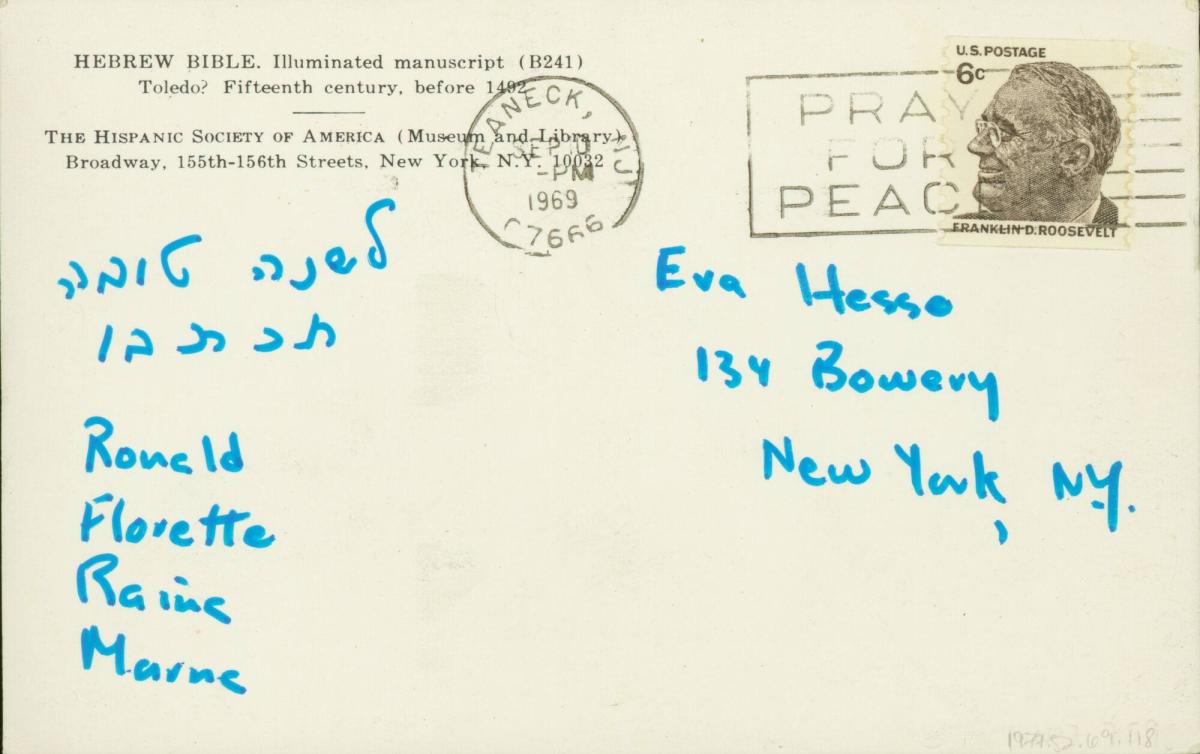 HEBREW BIBLE. Illuminated manuscript (B241)
Toledo? Fifteenth century, before 1492
THE HISPANIC SOCIETY OF AMERICA (Museum and Library)
Broadway, 155th-156th Streets, New York, N.Y. 10032
TEANECK, NJ
SEP
-PM
1969
07666
PRAY
FOR
PEACE
U.S. POSTAGE
6c
FRANKLIN D. ROOSEVELT
לשנה טובה
תכתבו
Ronald
Florette
Raine
Marne
Eva Hesse
134 Bowery
New York, N.Y.